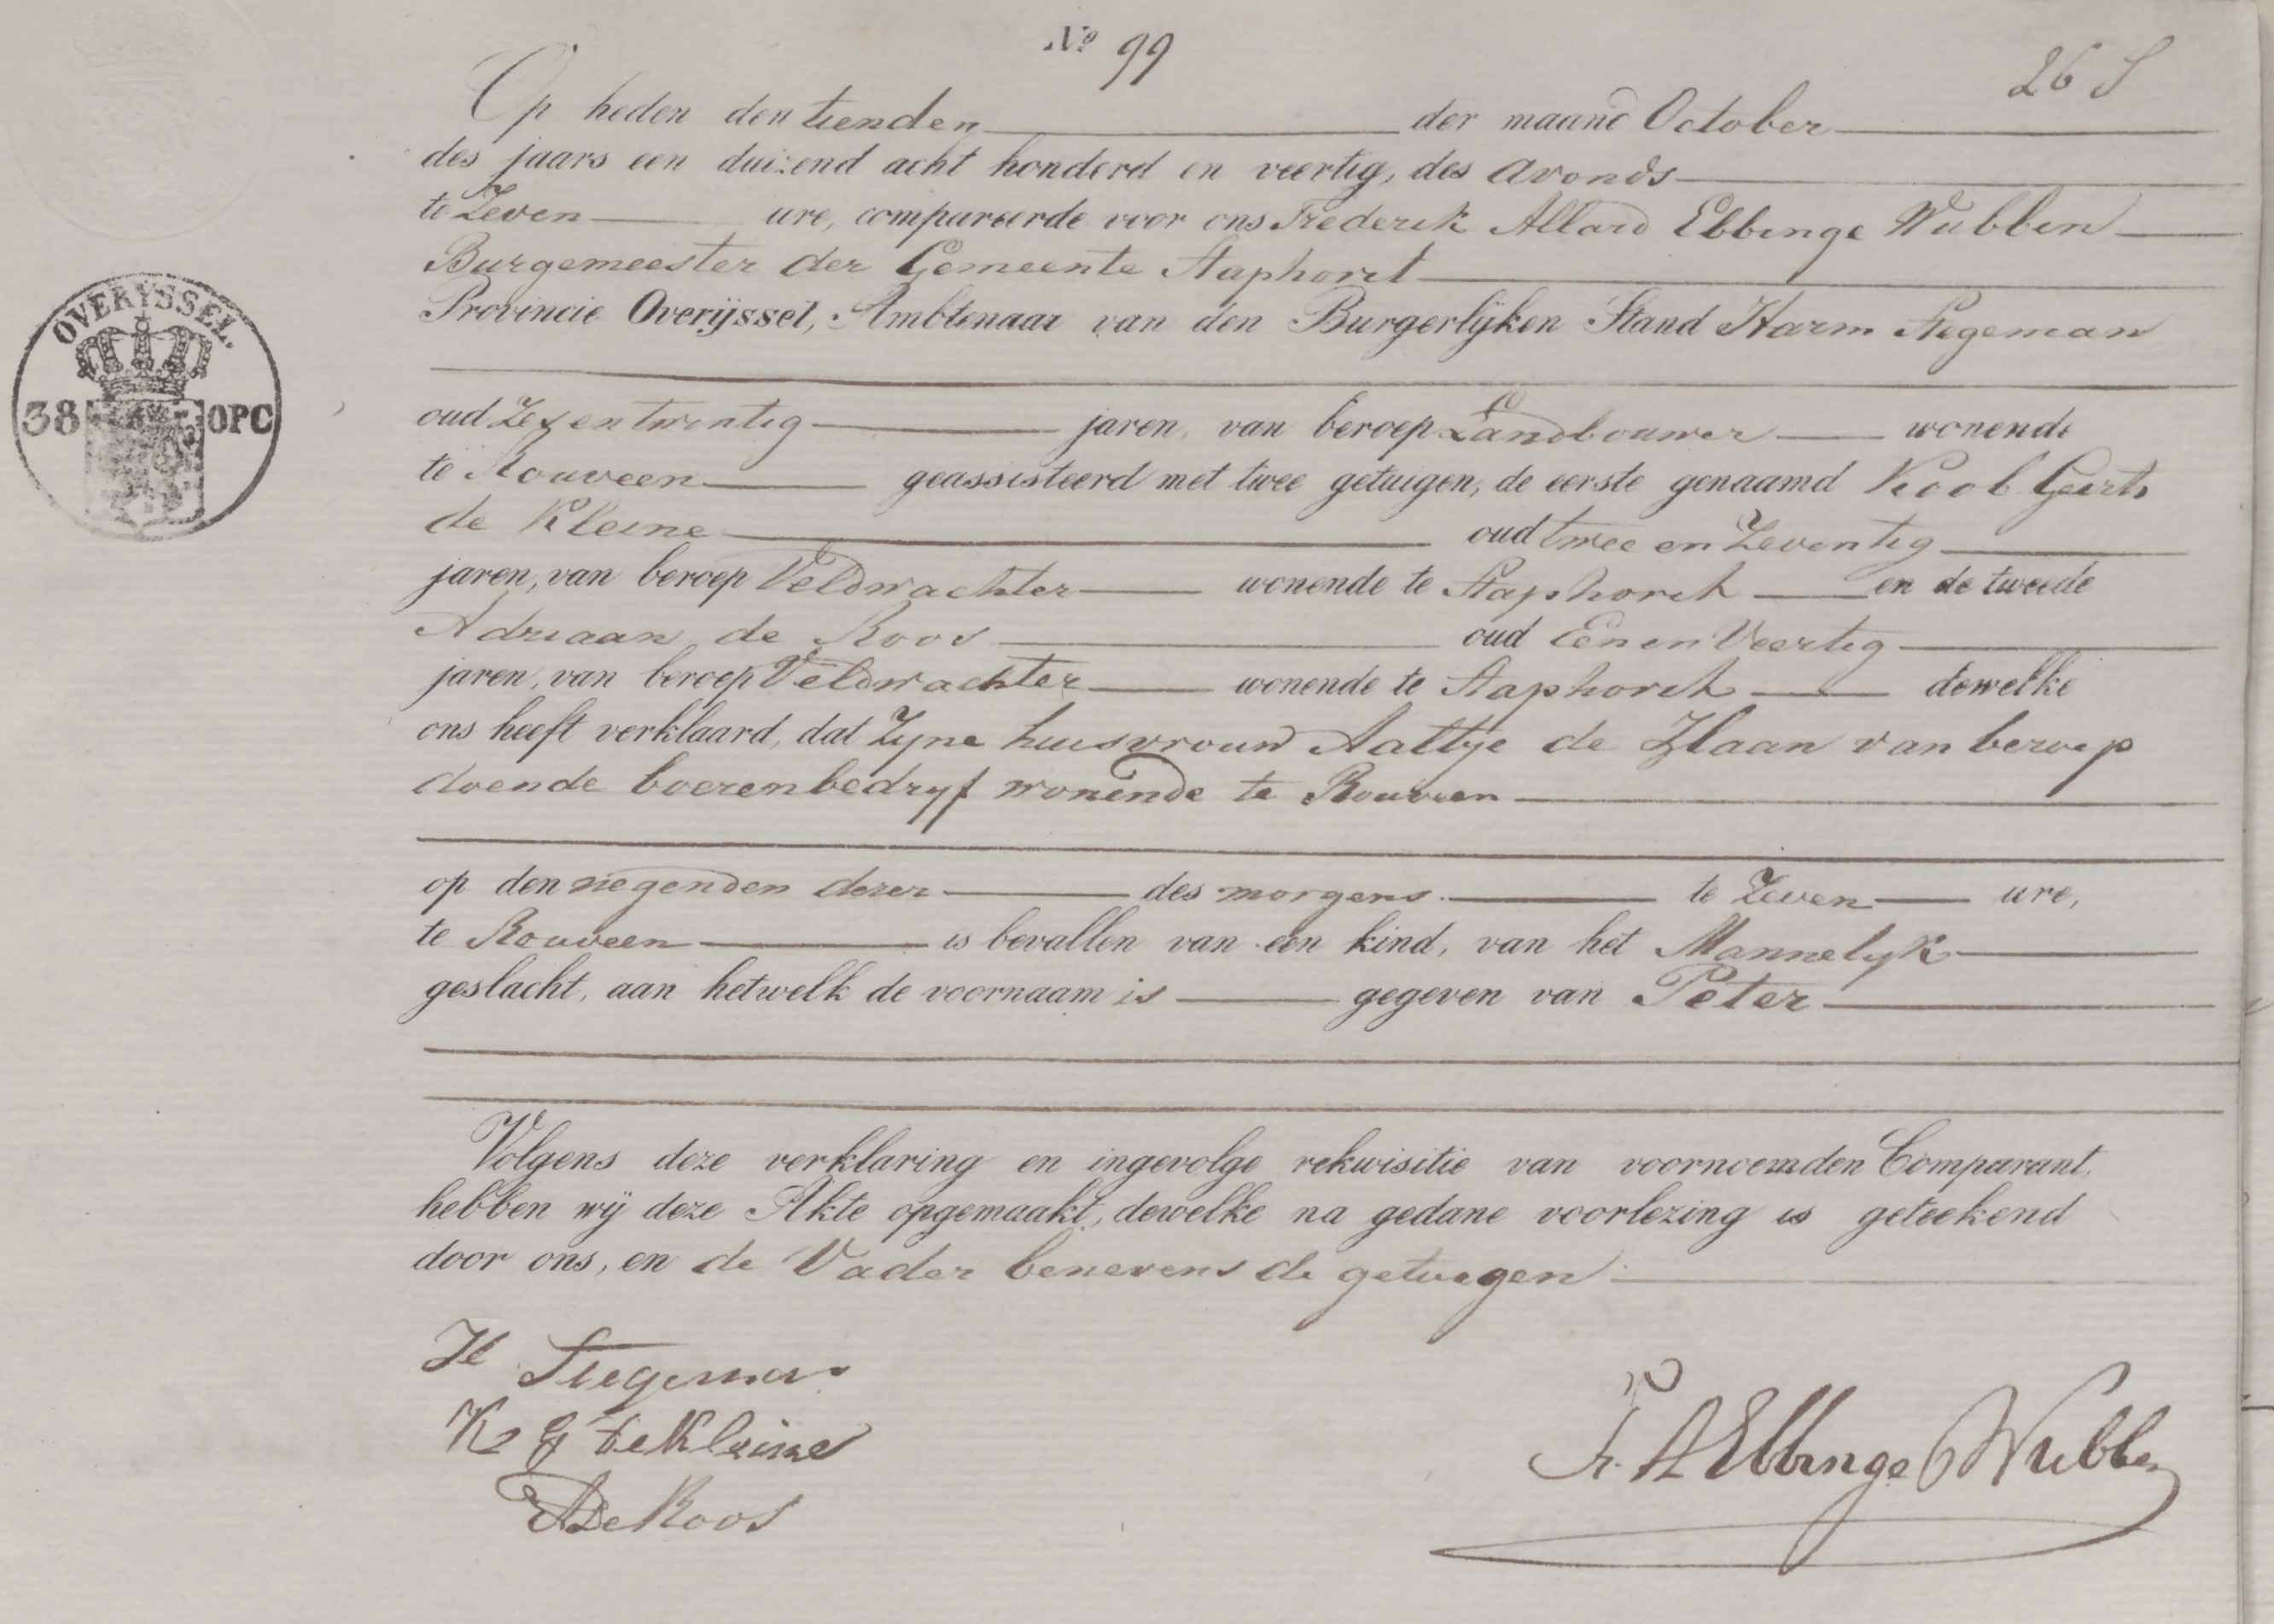 No 99
26 S
Op heden den tienden der maand October
des jaars een duizend acht honderd en veertig, des avonds
te Zeven ure, compareerde voor ons Frederik Allard Ebbinge Wubben
Burgemeester der Gemeente Staphorst
Provincie Overijssel, Ambtenaar van den Burgerlijken Stand Harm Stegeman
OVERYSSEL.
38 OPC
oud Zes en twintig jaren, van beroep Landbouwer wonende
te Rouveen geassisteerd met twee getuigen, de eerste genaamd Koob Geerts
de Kleine oud twee en Zeventig
jaren, van beroep Veldwachter wonende te Staphorst en de tweede
Adriaan de Roos oud Een en Veertig
jaren, van beroep Veldwachter wonende te Staphorst dewelke
ons heeft verklaard, dat Zyne huisvrouw Aaltje de Haan van beroep
doende boerenbedryf wonende te Rouveen
op den negenden dezer des morgens te Zeven ure,
te Rouveen is bevallen van een kind, van het Mannelyk
geslacht, aan hetwelk de voornaam is gegeven van Peter
Volgens deze verklaring en ingevolge rekwisitie van voornoemden Comparant
hebben wij deze Akte opgemaakt, dewelke na gedane voorlezing is geteekend
door ons, en de Vader benevens de getuigen
H Stegeman
K G de Kleine
A De Roos
F. A Ebbinge Wubben